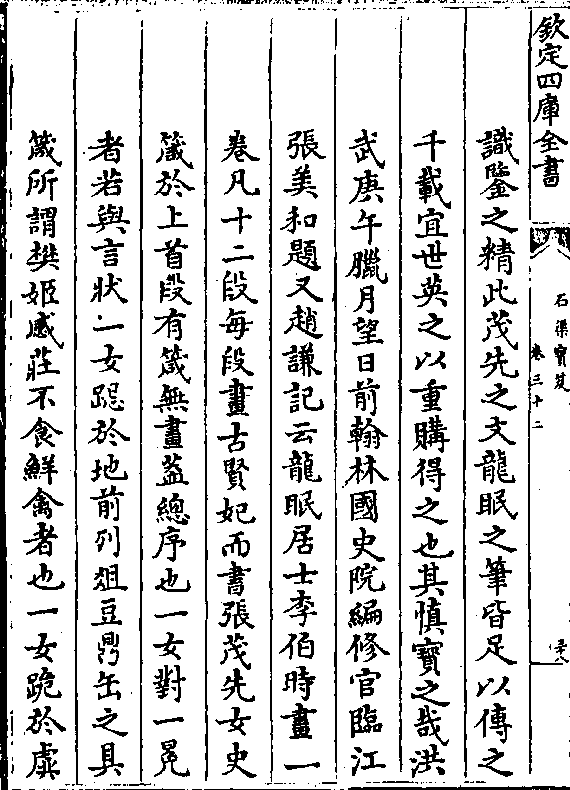 欽定四庫全書
石渠寶笈
卷三十二
識鑒之精此茂先之文龍眠之筆皆足以傳之
千載宜世英之以重購得之也其慎寶之哉洪
武庚午臘月望日前翰林國史院編修官臨江
張美和題又趙謙記云龍眠居士李伯時畫一
卷凡十二段每段畫古賢妃而書張茂先女史
箴於上首段有箴無畫葢總序也一女對一冕
者若與言狀一女跽於地前列俎豆鼎缶之具
箴所謂樊姬感莊不食鮮禽者也一女跪於虡